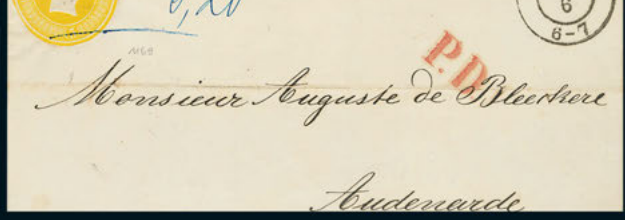 6
6-7
P.D.
Monsieur Auguste de Bleeckere
Audenarde